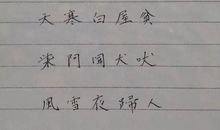 天寒白屋貧
柴門聞犬吠
風雪夜歸人